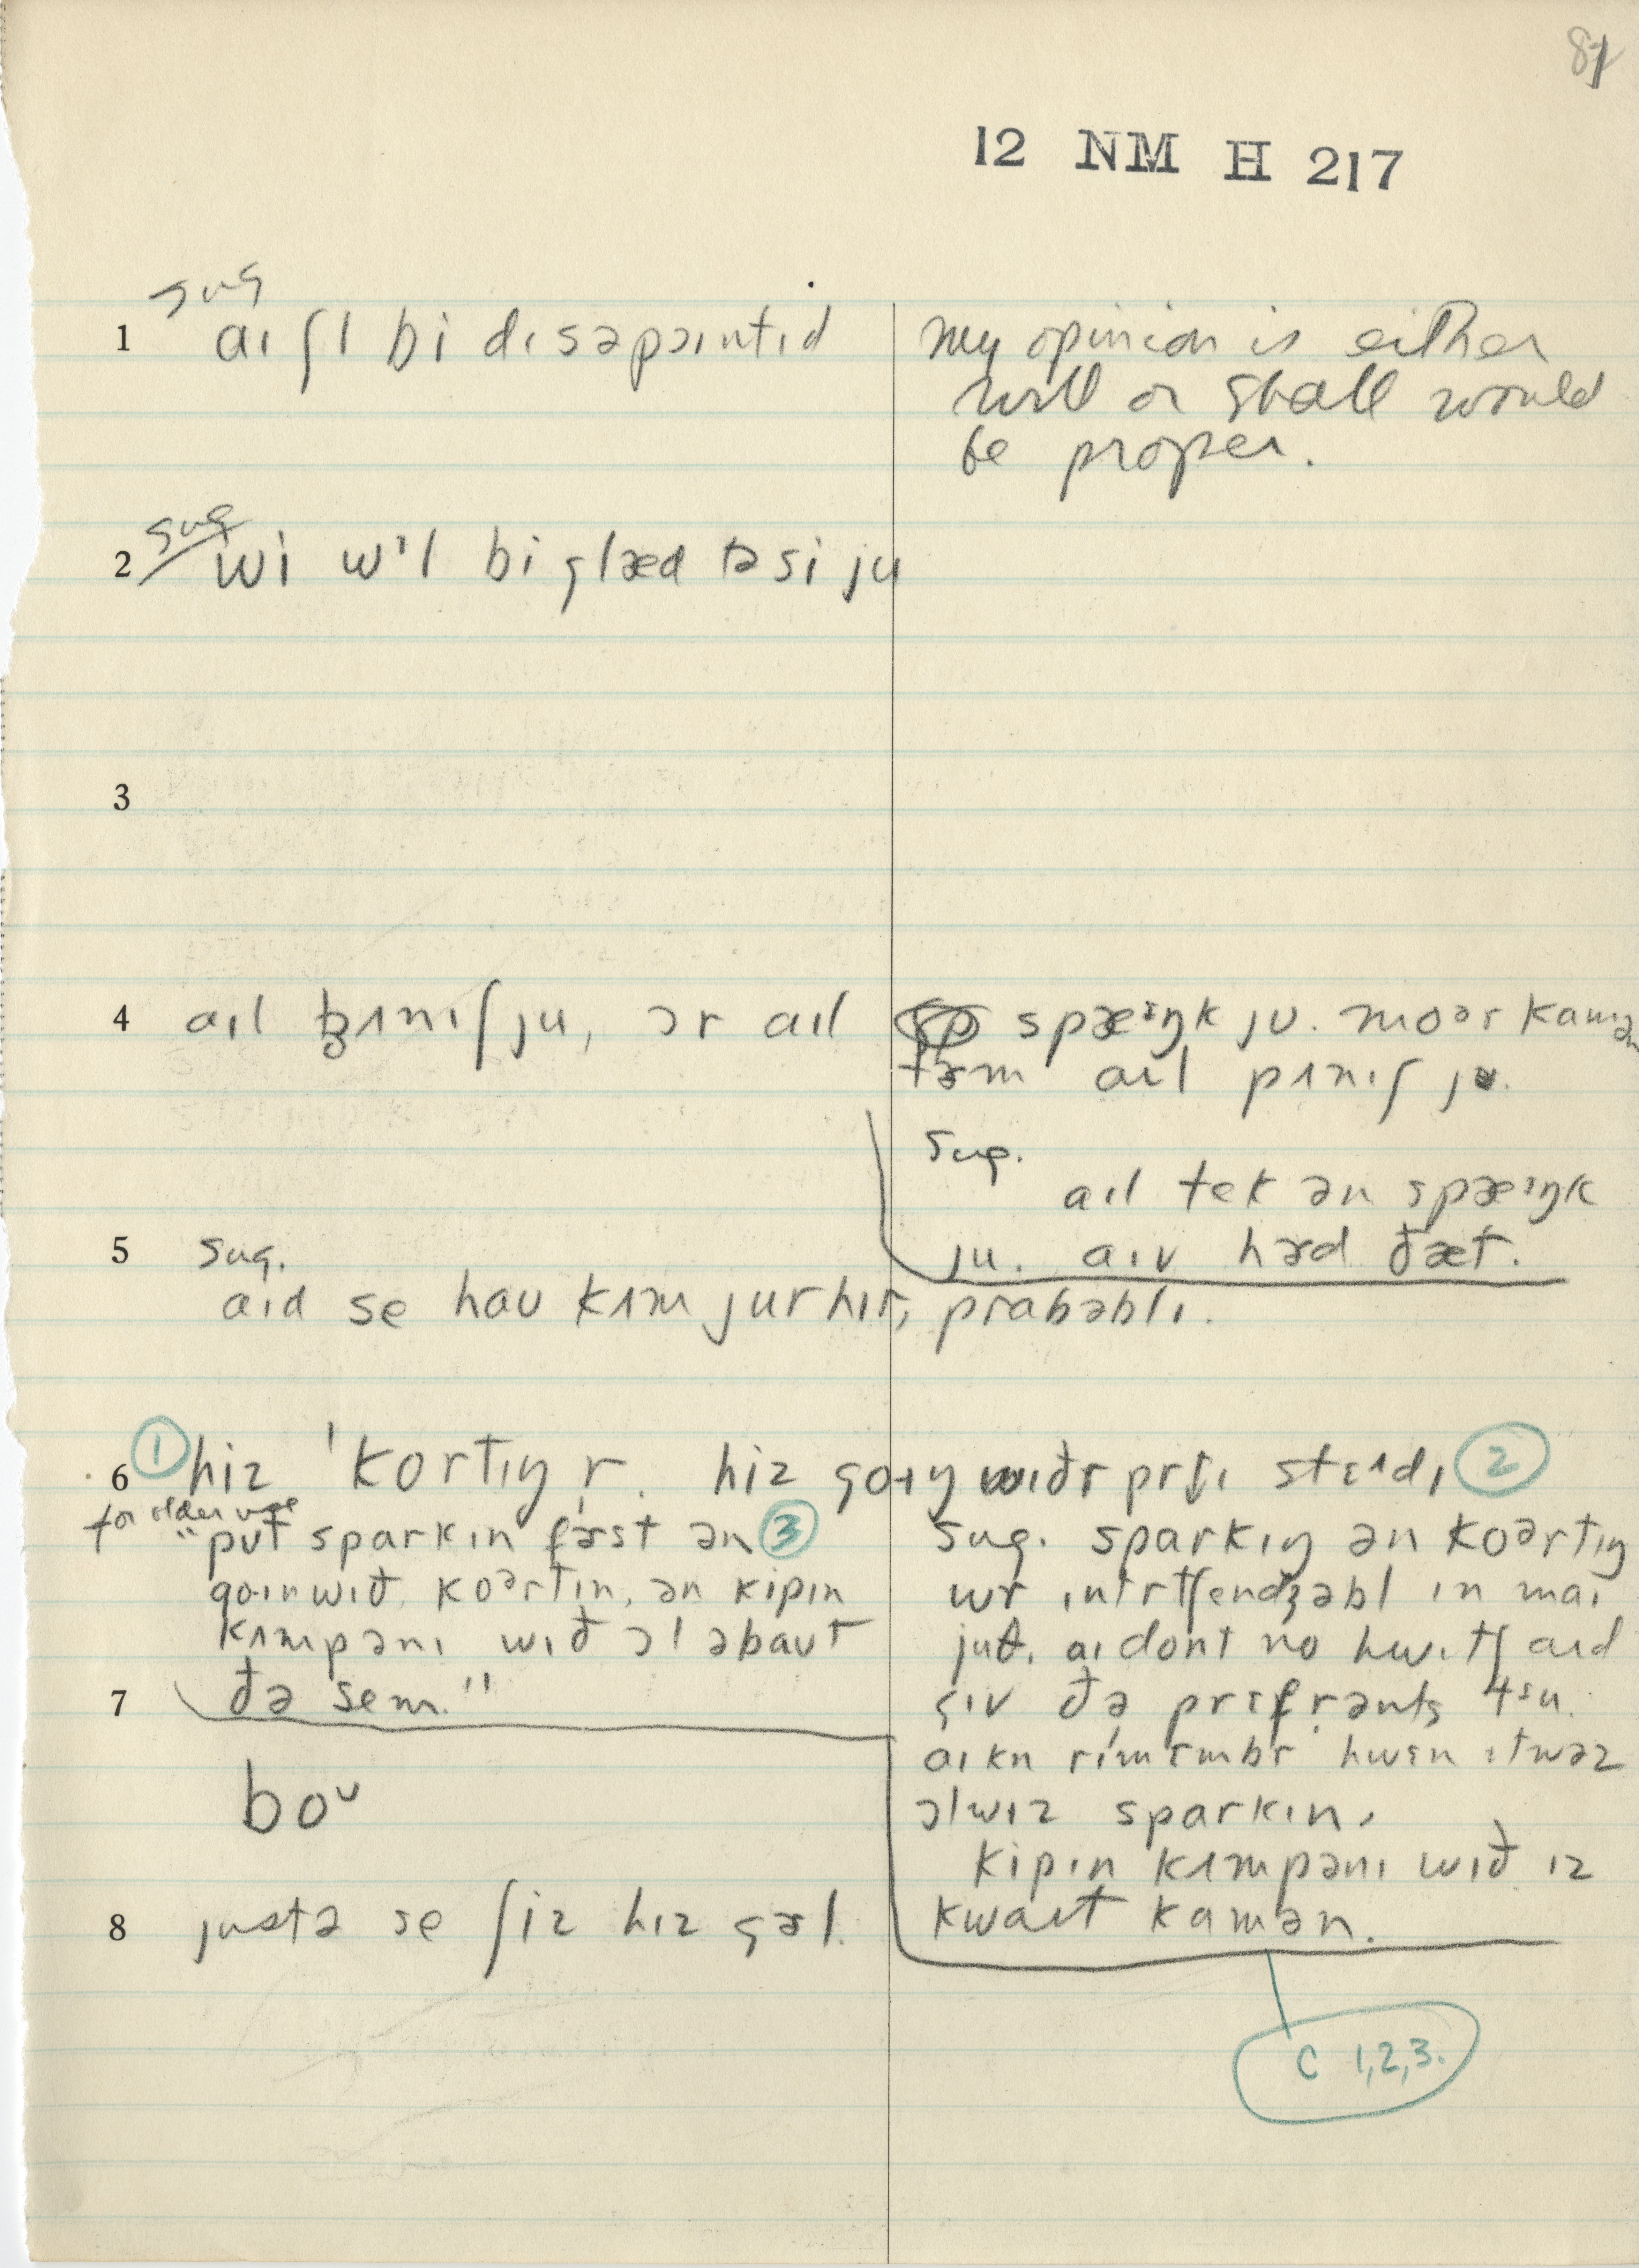 87
12 NM H 217
1 sug aɪ ʃl bi dɪsəpɔɪntɪd
my opinion is either
will or shall would
be proper.
2 sug wi wɪl bi glæd tə si ju
3
4 aɪl pʌnɪʃ ju, ɔr aɪl
spæᵋŋk ju. moər kamən
tɚm aɪl pʌnɪʃ ju.
Sug.
aɪl tek ən spæᵋŋk
ju. aɪv hɚd ðæt.
5 sug.
aɪd se haʊ kʌm jur hɪr, prabəblɪ.
6 ① hiz 'kortɪŋ r. hiz goɪŋ wɪðr prtɪ stɛdɪ ②
for older use
"put sparkɪn fɚst ən ③
goɪn wɪð, koərtɪn, ən kipɪn
kʌmpənɪ wɪð ɔl əbaut
ðə sem."
sug. sparkɪŋ ən koərtɪŋ
wr ɪntrtʃendʒəbl ɪn maɪ
juθ. aɪ dont no hwɪtʃ aɪd
gɪv ðə prɛfrənts tu.
aɪ kn rɪmɛmbr hwɛn ɪt wəz
ɔlwɪz sparkɪn.
kipɪn kʌmpənɪ wɪð ɪz
kwaɪt kamən.
7
boᵘ
8 justə se ʃiz hɪz gɚl.
C 1,2,3.